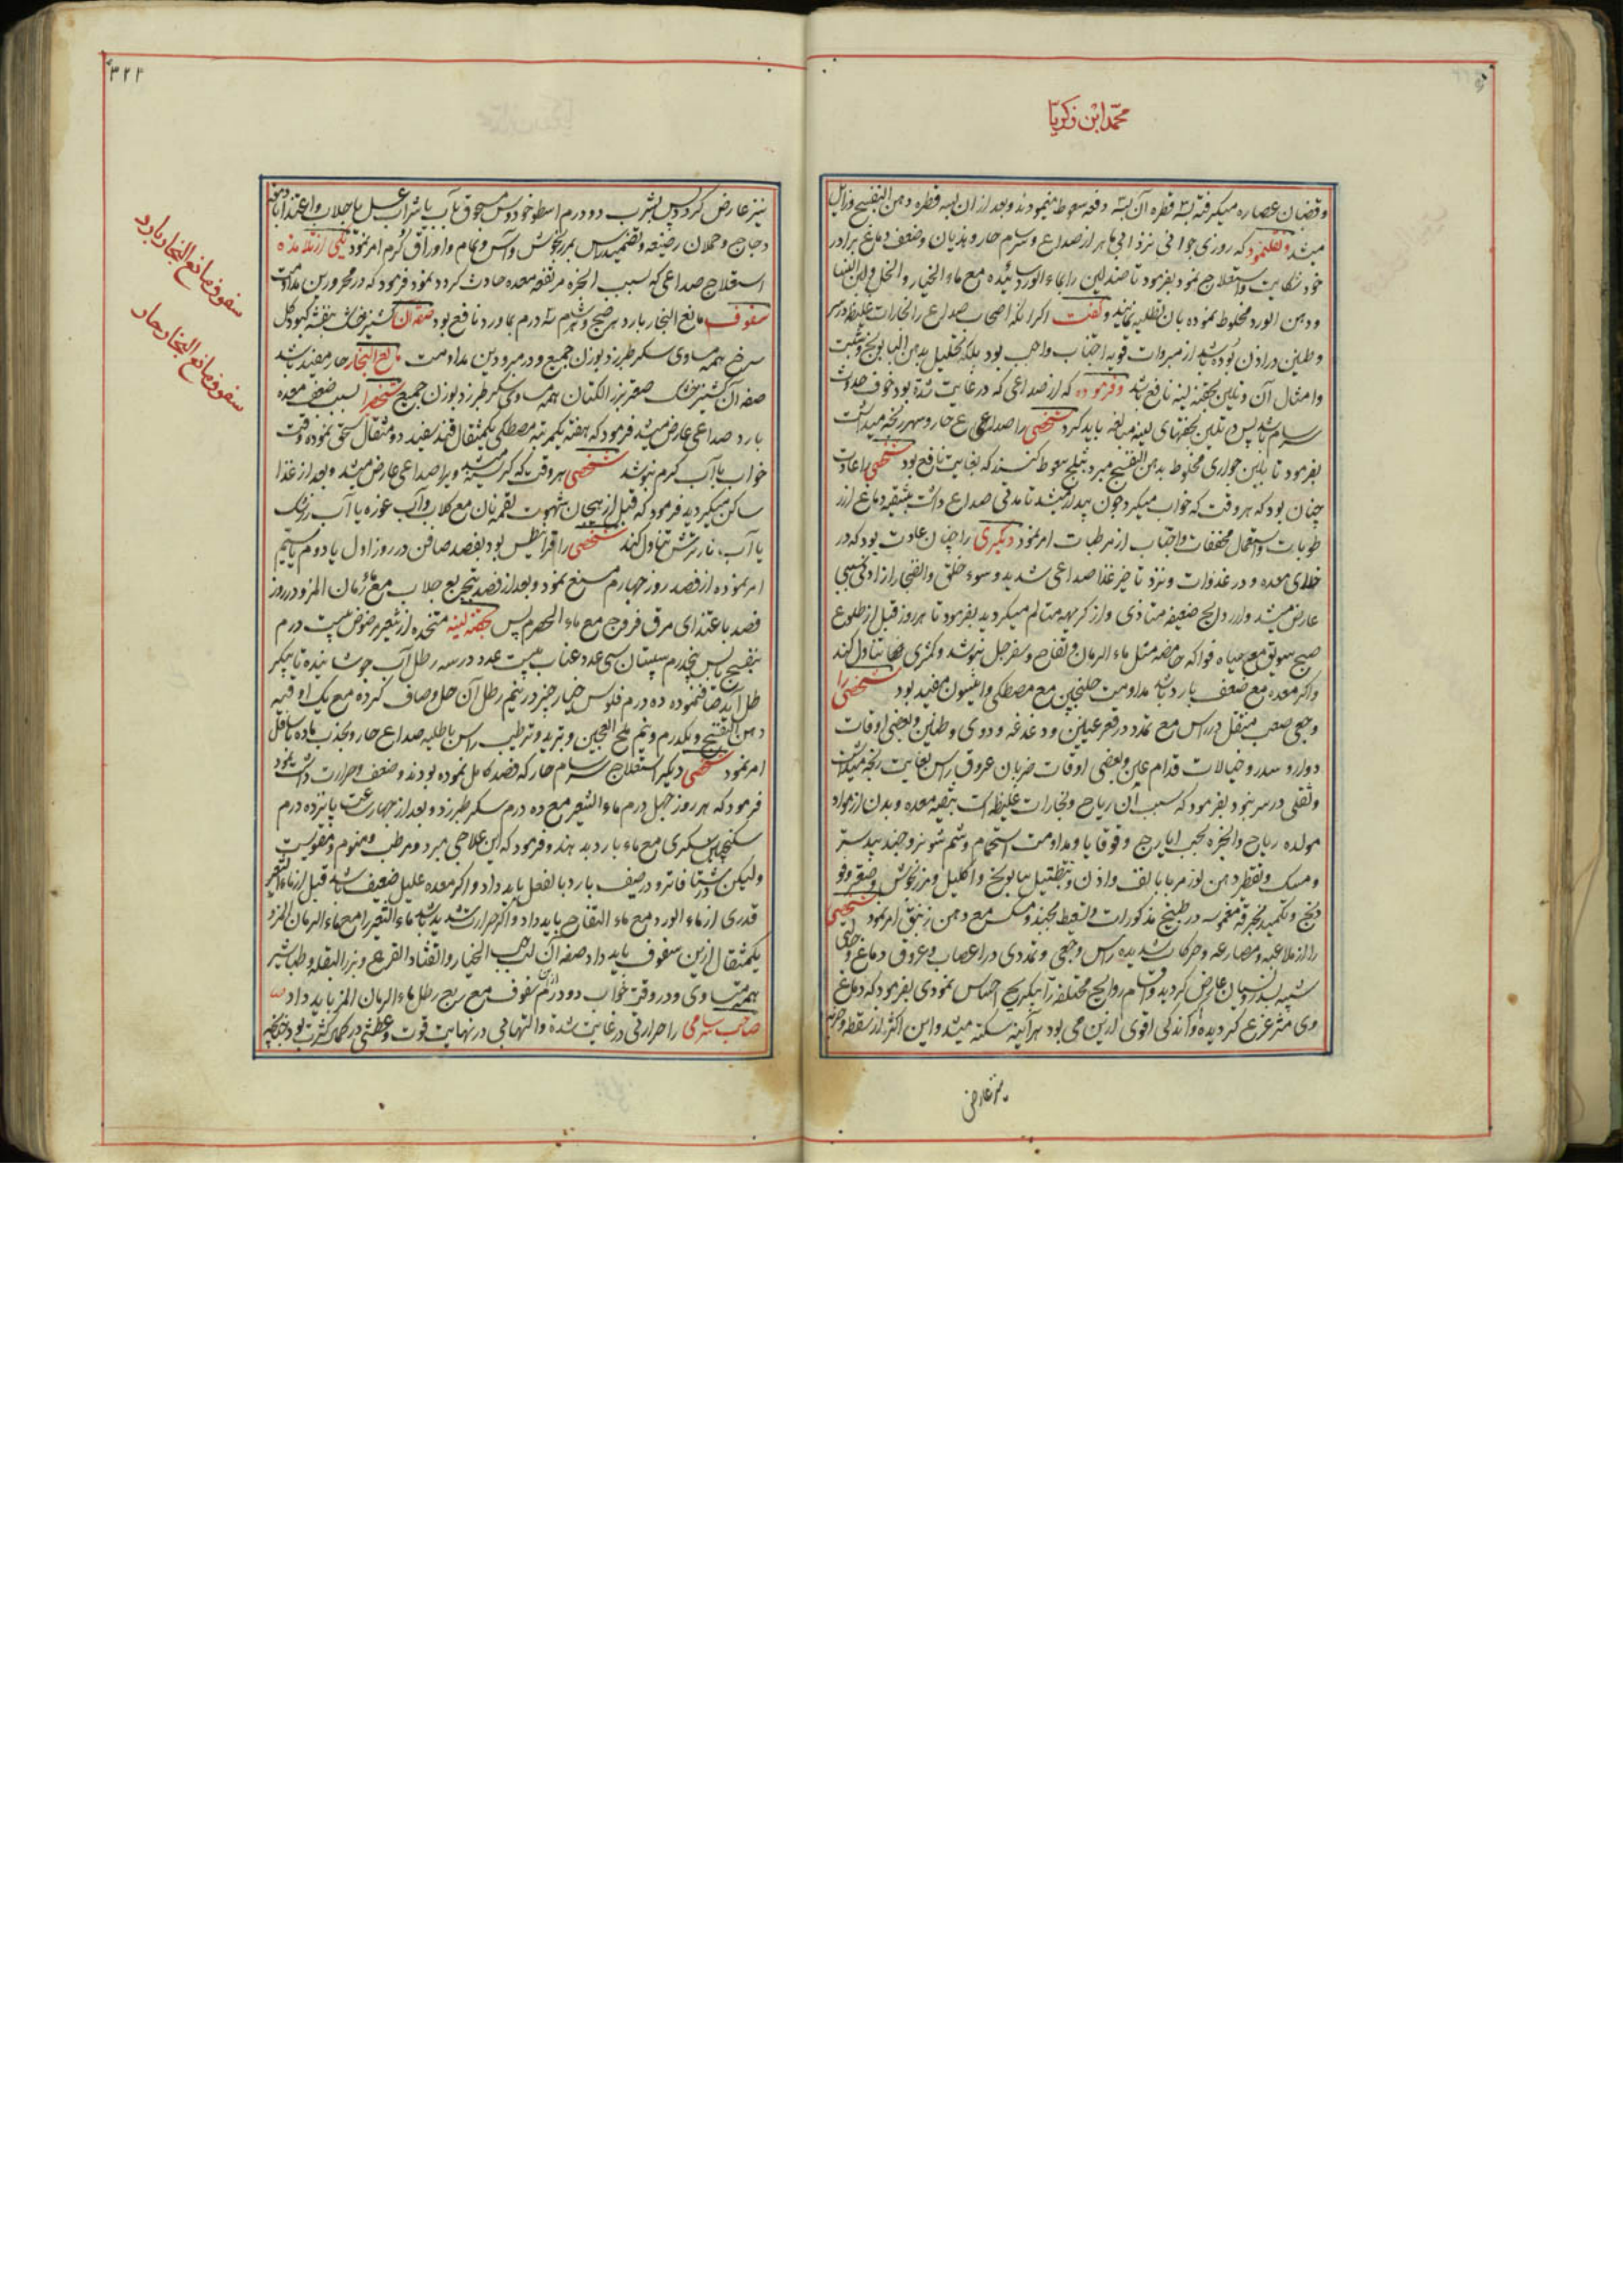 محمد ابن زکریا
و قضبان عصاره میکرفته سه قطره آن سه دفعه سعوط مینمودند و بعد ازان سه قطره دهن البنفسج و زایل
میشد و نقلنمود که روزی جوانی نزد ابی ماهر از صداع و سرسام حار و هذیان و ضعف دماغ برادر
خود شکایت و استعلاج نمود بفرمود تا صندلین را بماء الورد سائیده مع ماء الخیار و الخل و لبن النسا
و دهن الورد مخلوط نموده بان تطلیه نمایند و گفت اکر انکه اصحاب صداع را بخارات غلیظه در سر
و طنین در اذن بوده باشد از مبردات قویه اجتناب واجب بود بلکه تحلیل بدهن البابونج و شبت
و امثال آن و تلیین بحقنه لینه نافع باشد و فرموده که از صداعی که در غایت شدة بود خوف حدوث
سرسام باشد پس در تلیین بحقنهای لینه مبالغه باید کرد شخصی را صداعی حار و سهر رنجه میداشت
بفرمود تا بلبن جواری مخلوط بدهن البنفسج مبرد بثلج سعوط کنند که بغایت نافع بود شخصی را عادت
چنان بود که هر وقت که خواب میکرد چون بیدار میشد تا مدتی صداع داشت بتنقیه دماغ از
رطوبات و استعمال مجففات و اجتناب از مرطبات امر نمود دیکری را چنان عادت بود که در
خلای معده و در غدوات و نزد تاخیر غذا صداعی شدید و سوء خلق و الضجار از ادنی سببی
عارض میشد و از روایح ضعیفه متاذی و از کریهه متالم میکردید بفرمود تا هر روز قبل از طلوع
صبح سویق مع میاه فواکه حامضه مثل ماء الرمان و تفاح و سفرجل بنوشد و کمثری تناول کند
و اکر معده مع ضعف بارد باشد مداومت جلنجبین مع مصطکی و انیسون مفید بود شخصی را
وجعی صعب منتقل در راس مع تمدد در قعر عینین و دغدغه و دوی و طنین و بعضی اوقات
دوار و سدر و خیالات قدام عین و بعضی اوقات ضربان عروق راس بغایت رنجه میداشت
و ثقلی در سر بنود بفرمود که سبب آن ریاح و بخارات غلیظه است بتنقیه معده و بدن از مواد
مولده ریاح و ابخره بحب ایارج و قوقایا و مداومت استحمام و شم شونیز و جندبیدستر
و مسک و تقطیر دهن لوز مر بانف و اذن و بتنطیل ببابونج و اکلیل و مرزنجوش و صعتر و فو
دنج و تکمید بخرقه مغموسه در طبیخ مذکورات و تسعیط بجند و مسک مع دهن زنبق امر نمود شخصی
را از ملاعبه و مصارعه و حرکات شدیده راس وجعی و تمددی در اعصاب و عروق دماغ و حالتی
شبیه بسدر و نسیان عارض کردید و اقسام روایح مختلفه را بیکریح احساس نمودی بفرمود که دماغ
وی متزعزع کردیده و اندکی اقوی ازین می بود هر آینه سکته میشد و این اکثر از سقطه و ضربه
نیز عارض
۳۲۳
نیز عارض کردد پس بشرب دو درم اسطوخودوس مسحوق بآب یا شراب عسل یا جلاب و اغتذا بادمغه
دجاج و حملان رضیعه و تضمید راس بمرزنجوش و آس و نمام و اوراق کرم امر نمود یکی از تلامذه
استعلاج صداعی که بسبب ابخره مرتفعه معده حادث کردد نمود فرمود که در محرورین مداومت
سفوف مانع البخار بارد هر صبح و شام سه درم بماورد نافع بود صفه آن کشنیز خشک بنفشه کبود کل
سرخ همه مساوی سکر طبرزد بوزن جمیع و در مبرودین مداومت مانع البخار حار مفید باشد
صفه آن کشنیز خشک صعتر بزر الکتان همه مساوی سکر طبرزد بوزن جمیع شخصرا بسبب ضعف معده
بارد صداعی عارض میشد فرمود که هفته یکمرتبه مصطکی یکمثقال قند سفید دو مثقال سحق نموده وقت
خواب بآب کرم بنوشد شخصی هر وقت که کرسنه میشد ویرا صداعی عارض میشد و بعد از غذا
ساکن میکردید فرمود که قبل از هیجان شهوت لقمه نان مع کلاب و آب غوره یا آب زرشک
یا آب نار ترش تناول کند شخصی را قرانیطس بود بفصد صافن در روز اول یا دوم یا سیم
امر نموده از فصد روز چهارم منع نمود و بعد از فصد بتجریع جلاب مع ماء رمان المز و در روز
فصد باغتذای مرق فروج مع ماء الحصرم پس بحقنه لینه متخده از شعیر مرضوض بیست درم
بنفسج یابس پنجدرم سپستان سی عدد عناب بیست عدد در سه رطل آب جوشانیده تا بیک
رطل آید صاف نموده ده درم فلوس خیارچنبر در نیم رطل آن حل و صاف کرده مع یک اوقیه
دهن البنفسج و یکدرم و نیم ملح العجین و تبرید و ترطیب راس باطلیه صداع حار و بجذب ماده باسافل
امر نمود شخصی دیکر استعلاج سرسام حار که فصد کامل نموده بودند و ضعف و حرارت داشت نمود
فرمود که هر روز چهل درم ماء الشعیر مع ده درم سکر طبرزد و بعد از چهار ساعت پانزده درم
سکنجبین سکری مع ماء بارد بدهند و فرمود که این علاجی مبرد و مرطب و منوم و مقویست
ولیکن در شتا فاتر و در صیف بارد بالفعل باید داد و اکر معده علیل ضعیف باشد قبل از ماء الشعیر
قدری از ماء الورد مع ماء التفاح باید داد و اکر حرارت شدید باشد ماء الشعیر را مع ماء الرمان المز و
یکمثقال ازین سفوف باید داد صفه آن لب حب الخیار و القثاء و القرع و بزر البقله و طباشیر
همه متساوی و در وقت خواب دو درم ازین سفوف مع ربع رطل ماء الرمان المز باید داد
صاحب سرسامی را حرارتی در غایت شدة و التهابی در نهایت قوت و عطشی در کمال کثرت بود چنانچه
سفوف مانع البخار بارد
سفوف مانع البخار حار